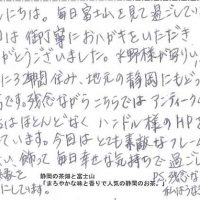 にちは。毎日富士山を見て過ごしてい
日は御丁寧におハガキをいただき
がとうございました。水野様が寄りい
に3年間住み、地元の静岡にもどっ
です。残念ながらこちらではアンティーク
はほとんどなく ハンドル様のHP
ています。今回はとても素敵なフレーム
い、飾って毎日幸せな気持ちで過ごし
にしています。
P.S. 残念な
私はうな
静岡の茶畑と富士山
「まろやかな味と香りで人気の静岡のお茶。」